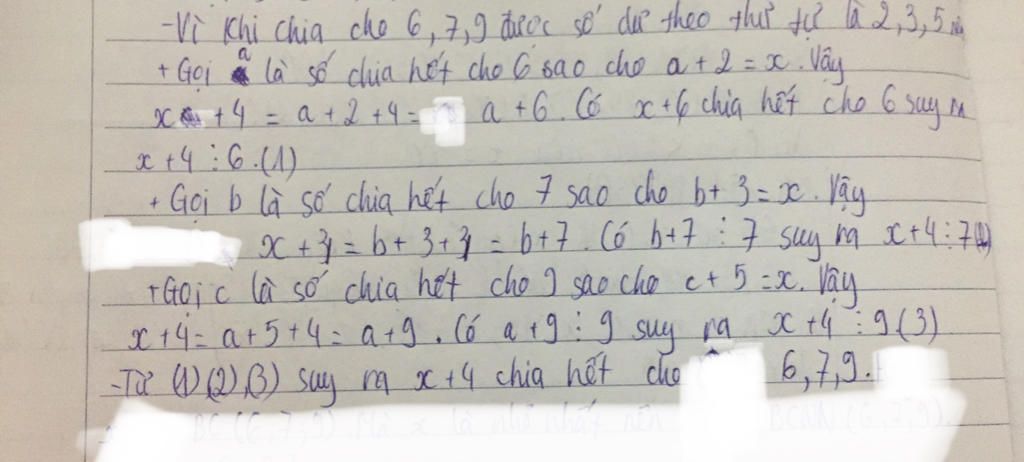 -Vì khi chia cho 6,7,9 được số dư theo thứ tự là 2,3,5
+ Gọi a là số chia hết cho 6 sao cho a+2=x. Vậy
x +4 = a+2+4= a+6. Có x+6 chia hết cho 6 suy ra
x+4⋮6.(1)
+ Gọi b là số chia hết cho 7 sao cho b+3=x. Vậy
x+4=b+3+4=b+7. Có b+7⋮7 suy ra x+4⋮7(2)
+Gọi c là số chia hết cho 9 sao cho c+5=x. Vậy
x+4=a+5+4=a+9. Có a+9⋮9 suy ra x+4⋮9(3)
-Từ (1)(2)(3) suy ra x+4 chia hết cho 6,7,9.
BC(6,7,9). Mà x là nhỏ nhất nên BCNN(6,7,9).